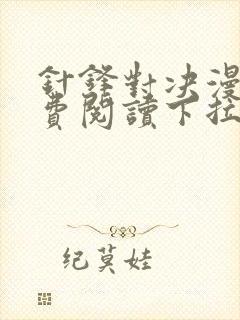 針鋒對决漫
費閱讀下拉
纪莫娃